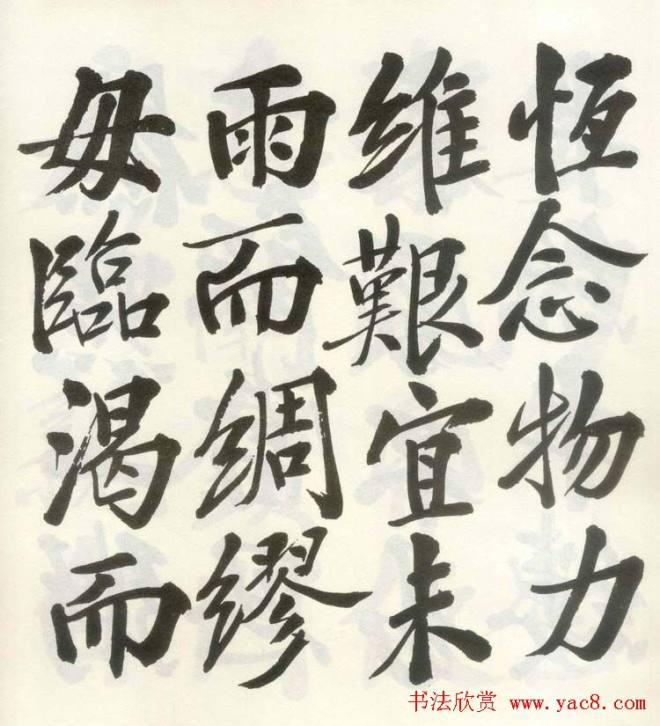 恆念物力
維艱宜未
雨而綢繆
毋臨渴而
书法欣赏 www.yac8.com